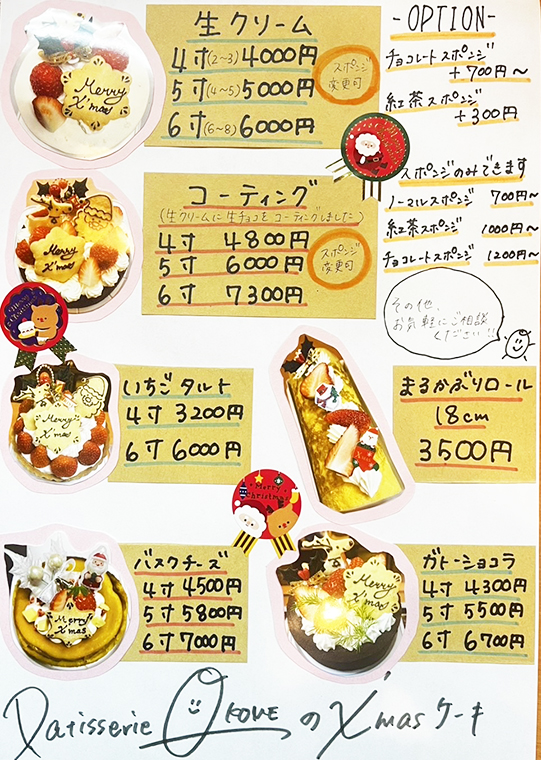 生クリーム
4寸(2~3) 4000円
5寸(4~5) 5000円
6寸(6~8) 6000円
スポンジ
変更可
Merry
X'mas
-OPTION-
チョコレートスポンジ
+700円~
紅茶スポンジ
+300円
スポンジのみできます
ノーマルスポンジ 700円~
紅茶スポンジ 1000円~
チョコレートスポンジ 1200円~
その他、
お気軽にご相談
ください!!
コーティング
(生クリームに生チョコをコーティングしました)
4寸 4800円
5寸 6000円
6寸 7300円
スポンジ
変更可
Merry
X'mas
いちごタルト
4寸 3200円
6寸 6000円
Merry
X'mas
まるかぶりロール
18cm
3500円
Merry
Christmas
バスクチーズ
4寸 4500円
5寸 5800円
6寸 7000円
Merry
X'mas
ガトーショコラ
4寸 4300円
5寸 5500円
6寸 6700円
Merry
X'mas
Patisserie OKONE のX'masケーキ